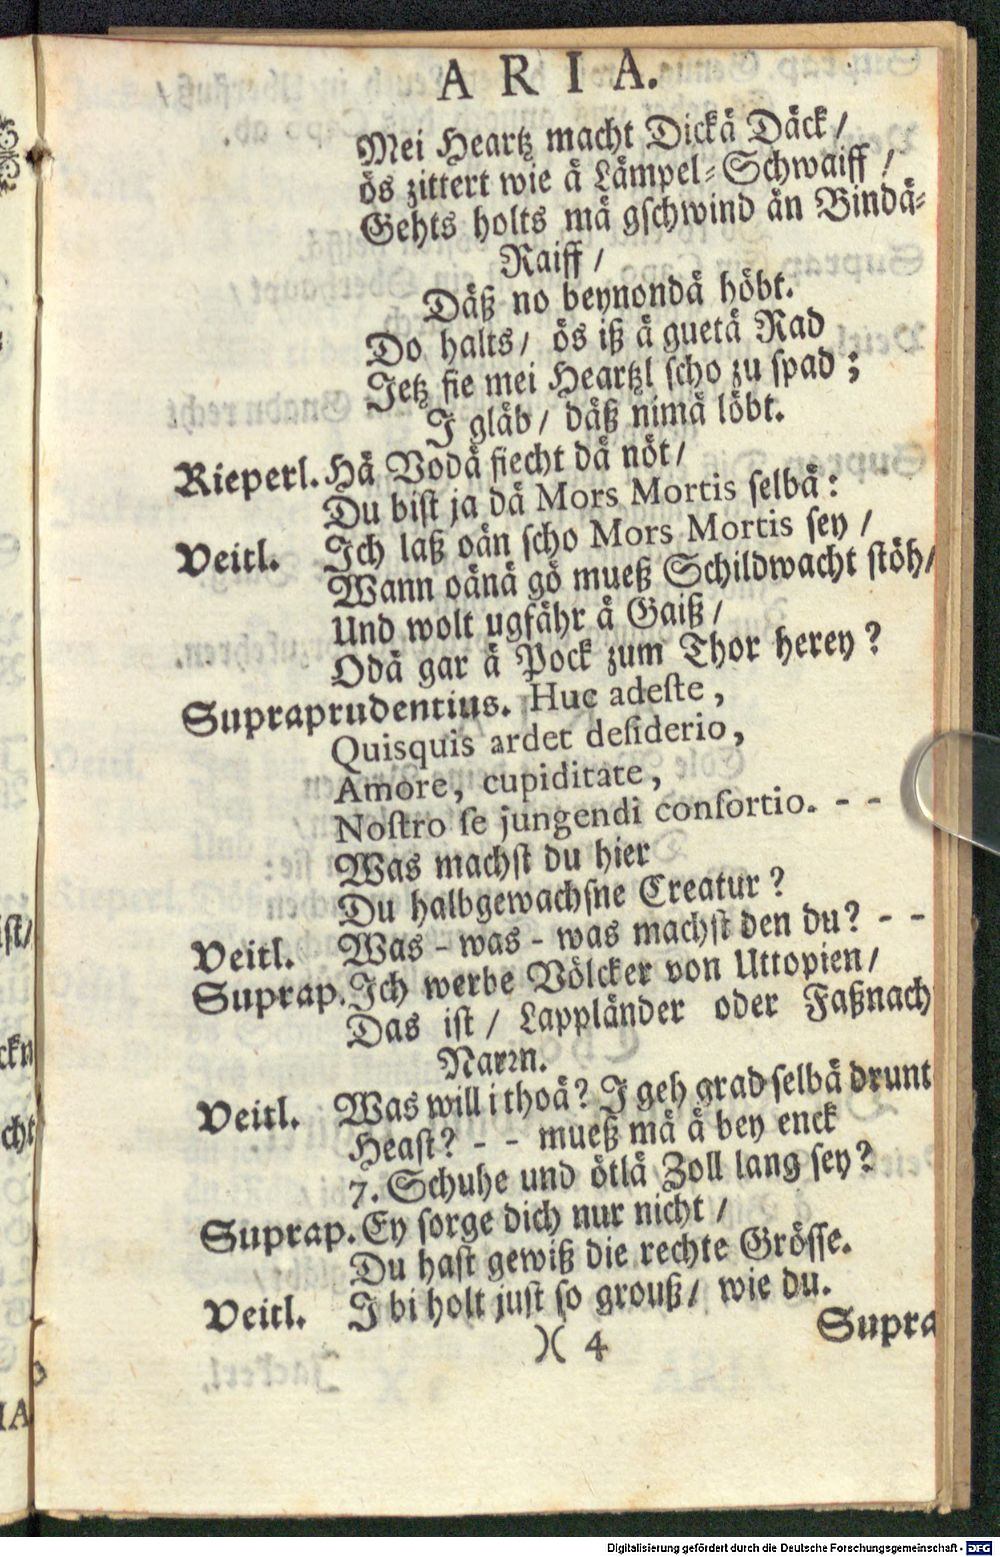 ARIA.
Mei Heartz macht Dickå Däck /
ös zittert wie å Lämpel-Schwaiff /
Gehts holts må gschwind ån Bindå-
Raiff /
Däß no beynondå höbt.
Do halts / ös iß å guetå Rad
Jetz sie mei Heartzl scho zu spad ;
J gläb / däß nimå löbt.
Rieperl. Hå Vodå siecht då nöt /
Du bist ja då Mors Mortis selbå :
Veitl. Ich laß oån scho Mors Mortis sey /
Wann oånå gö mueß Schildwacht stöh /
Und wolt ugfåhr å Gaiß /
Odå gar å Pock zum Thor herey ?
Supraprudentius. Huc adeste ,
Quisquis ardet desiderio ,
Amore , cupiditate ,
Nostro se jungendi consortio. - -
Was machst du hier
Du halbgewachsne Creatur ?
Veitl. Was - was - was machst den du ? - -
Suprap. Ich werbe Völcker von Uttopien /
Das ist / Lappländer oder Faßnach
Narrn.
Veitl. Was will i thoå ? J geh grad selbå drunt
Heast ? - - mueß må å bey enck
7. Schuhe und ötlå Zoll lang sey ?
Suprap. Ey sorge dich nur nicht /
Du hast gewiß die rechte Grösse.
Veitl. J bi holt just so grouß / wie du.
)( 4
Supra
ist /
ckn
cht
IA
Digitalisierung gefördert durch die Deutsche Forschungsgemeinschaft - DFG